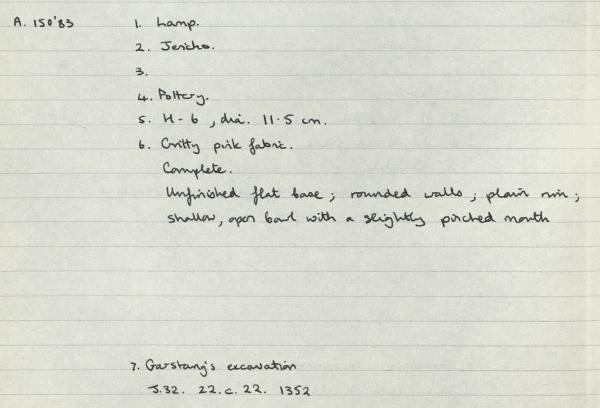 A. 150'83
1. Lamp.
2. Jericho.
3.
4. Pottery.
5. H - 6 , dia. 11·5 cm.
6. Gritty pink fabric.
Complete.
Unfinished flat base ; rounded walls ; plain rim ;
shallow, open bowl with a slightly pinched mouth
7. Garstang's excavation
J.32. 22.c. 22. 1352